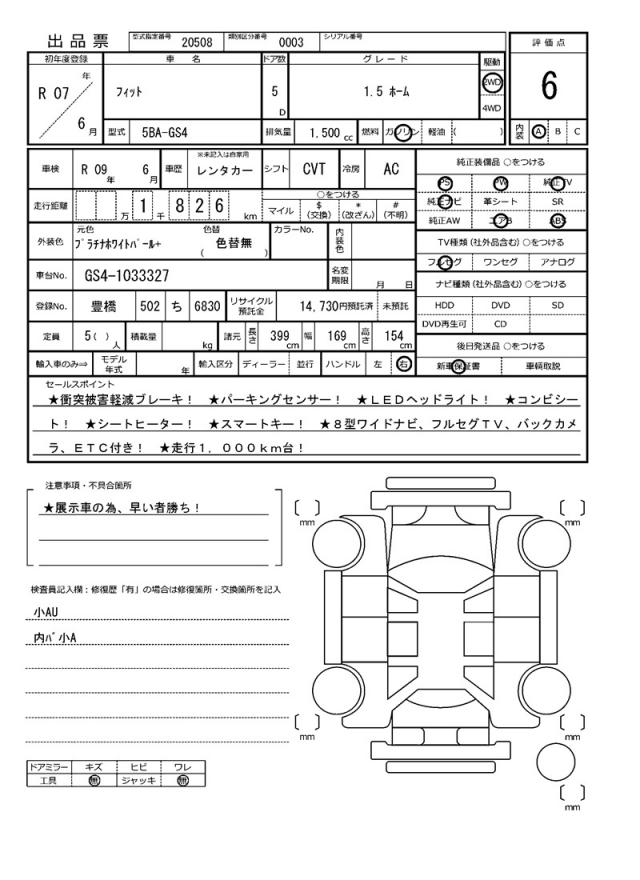 出品票 型式指定番号 20508 類別区分番号 0003 シリアル番号
評価点
6
内装 A B C
初年度登録 車名 ドア数 グレード 駆動
R 07 年 6 月 フィット 5 D 1.5 ホーム 2WD 4WD
型式 5BA-GS4 排気量 1.500 cc 燃料 ガソリン 軽油 ( )
車検 R 09 年 6 月 車歴 ※未記入は自家用 レンタカー シフト CVT 冷房 AC
走行距離 万 1 千 8 2 6 km ○をつける
マイル $ (交換) * (改ざん) # (不明)
外装色 元色 プラチナホワイトパール+ 色替 ( 色替無 ) カラーNo. 内装色
車台No. GS4-1033327 名変期限 月 日
登録No. 豊橋 502 ち 6830 リサイクル預託金 14,730円預託済 未預託
定員 5( ) 人 積載量 kg 諸元 長さ 399 cm 幅 169 cm 高さ 154 cm
輸入車のみ⇒ モデル年式 年 輸入区分 ディーラー 並行 ハンドル 左 右
純正装備品 ○をつける
PS PW 純正TV
純正ナビ 革シート SR
純正AW エアB ABS
TV種類 (社外品含む) ○をつける
フルセグ ワンセグ アナログ
ナビ種類 (社外品含む) ○をつける
HDD DVD SD
DVD再生可 CD
後日発送品 ○をつける
新車保証書 車輌取説
セールスポイント
★衝突被害軽減ブレーキ! ★パーキングセンサー! ★LEDヘッドライト! ★コンビシー
ト! ★シートヒーター! ★スマートキー! ★8型ワイドナビ、フルセグTV、バックカメ
ラ、ETC付き! ★走行1,000km台!
注意事項・不具合箇所
★展示車の為、早い者勝ち!
検査員記入欄:修復歴「有」の場合は修復箇所・交換箇所を記入
小AU
内バ小A
ドアミラー キズ ヒビ ワレ
工具 無 ジャッキ 無
mm
mm
mm
mm
mm